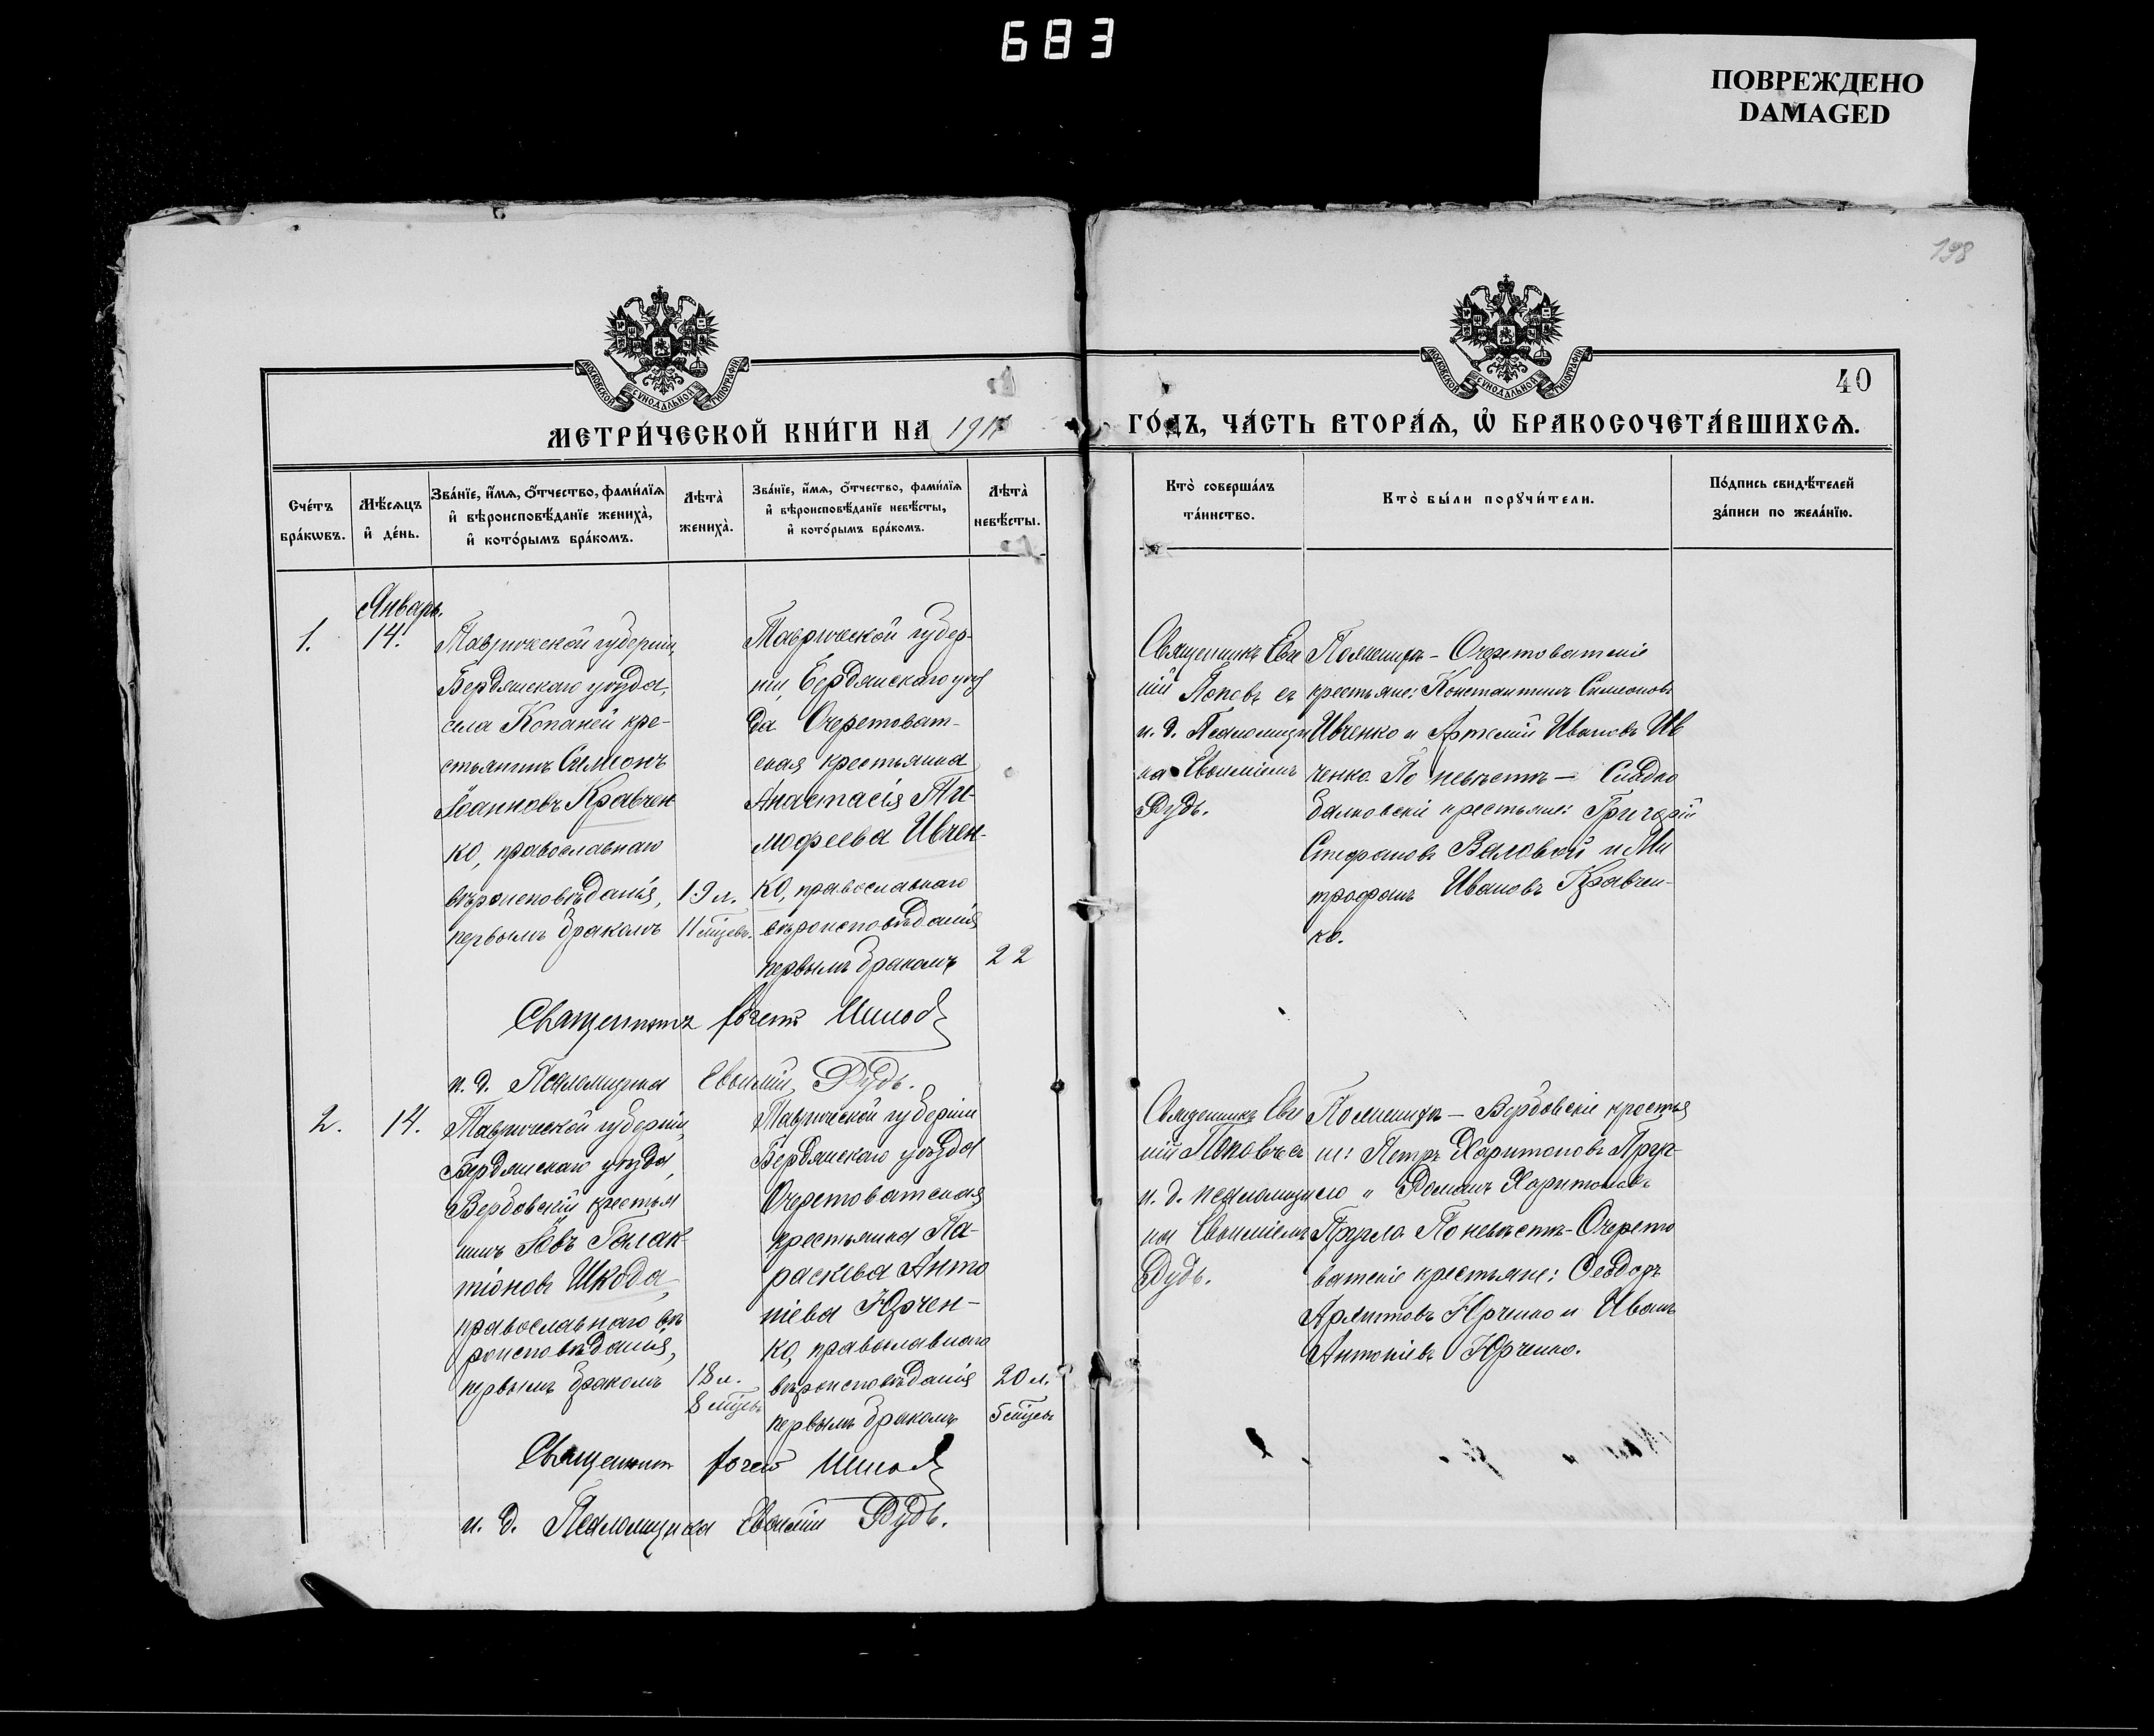 683
ПОВРЕЖДЕНО
DAMAGED
198
МОСКОВСКОЙ СѴНОДАЛЬНОЙ ТИПОГРАФІИ
МОСКОВСКОЙ СѴНОДАЛЬНОЙ ТИПОГРАФІИ
40
МЕТРИ́ЧЕСКОЙ КНИ́ГИ НА 191
ГО́ДЪ, ЧА́СТЬ ВТОРА́Ѧ, Ѡ҆ БРАКОСОЧЕТА́ВШИХСѦ.
Сче́тъ
бра́кѡвъ.
Мѣ́сѧцъ
и҆ де́нь.
Зва́нїе, и҆́мѧ, ѻ҆́тчество, фами́лїѧ
и҆ вѣроисповѣ́данїе жениха̀,
и҆ кото́рымъ бра́комъ.
Лѣта̀
жениха̀.
Зва́нїе, и҆́мѧ, ѻ҆́тчество, фами́лїѧ
и҆ вѣроисповѣ́данїе невѣ́сты,
и҆ кото́рымъ бра́комъ.
Лѣта̀
невѣ́сты.
Кто̀ соверша́лъ
та́инство.
Кто̀ бы́ли порꙋчи́тели.
По́дпись свидѣ́телей
за́писи по жела́нїю.
Январь.
1.
14.
Таврической губерніи,
Бердянскаго уѣзда,
села Копаней кре-
стьянинъ Симеонъ
Іоанновъ Кравчен
ко, православнаго
вѣроисповѣданія,
первымъ бракомъ
19 л.
11 мѣцевъ.
Таврической губер-
ніи Бердянскаго уѣз
да Очеретоват-
ская крестьянка
Анастасія Ти-
мофеева Ивчен-
ко, православнаго
вѣроисповѣданія
первымъ бракомъ
22
Священникъ Евге
ній Поповъ съ
и. д. Псаломщи
ка Евфиміемъ
Рудь.
По женихѣ – Очеретоватскіе
крестьяне: Константинъ Симеоновъ
Ивченко и Артемій Ивановъ Ив
ченко По невѣстѣ – Сладко
балковскіе крестьяне: Григорій
Стефановъ Валовой и Ми
трофанъ Ивановъ Кравчен-
ко.
Священникъ
и. д. Псаломщика Евфимій Рудь.
2.
14.
Таврической губерніи,
Бердянскаго уѣзда,
Вербовскій крестья
нинъ Іовъ Галак
тіоновъ Шкода,
православнаго вѣ
роисповѣданія,
первымъ бракомъ
18 л.
8 мѣцевъ
Таврической губерніи
Бердянскаго уѣзда
Очеретоватская
крестьянка Па-
раскева Анто
ніева Юрчен-
ко, православнаго
вѣроисповѣданія
первымъ бракомъ
20 л.
5 мѣцевъ
Священникъ Евге
ній Поповъ съ
и. д. псаломщи
ка Евфиміемъ
Рудь.
По женихѣ – Вербовскіе крестья
не: Петръ Харитоновъ
и Романъ Харитоновъ
По невѣстѣ – Очерето
ватскіе крестьяне: Ѳеодоръ
Юрченко и Иванъ
Антоніевъ Юрченко.
Священникъ
и. д. Псаломщика Евфимій Рудь.